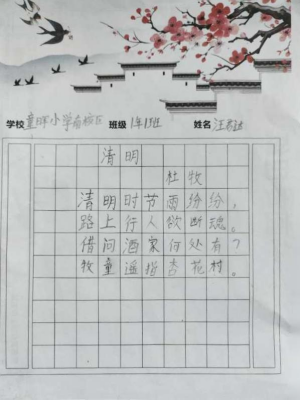 学校 童晖小学南校区 班级 1年13班 姓名 汪君
清明
杜牧
清明时节雨纷纷，
路上行人欲断魂。
借问酒家何处有？
牧童遥指杏花村。